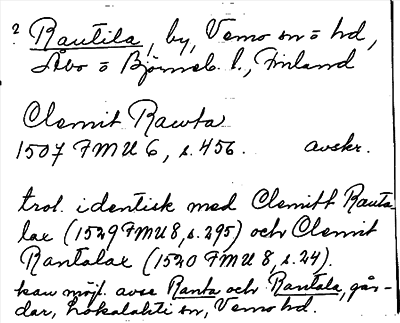 ? Rautila, by, Vemo sn o hd,
Åbo o Björneb. l., Finland
Clemit Rawta
1507 FMU 6, s. 456. avskr.
trol. identisk med Clemitt Rauta-
lax (1529 FMU 8, s. 295) och Clemit
Rantalax (1520 FMU 8, s. 24).
kan möjl. avse Ranta och Rantala, går-
dar, Lokalahti sn, Vemo hd.